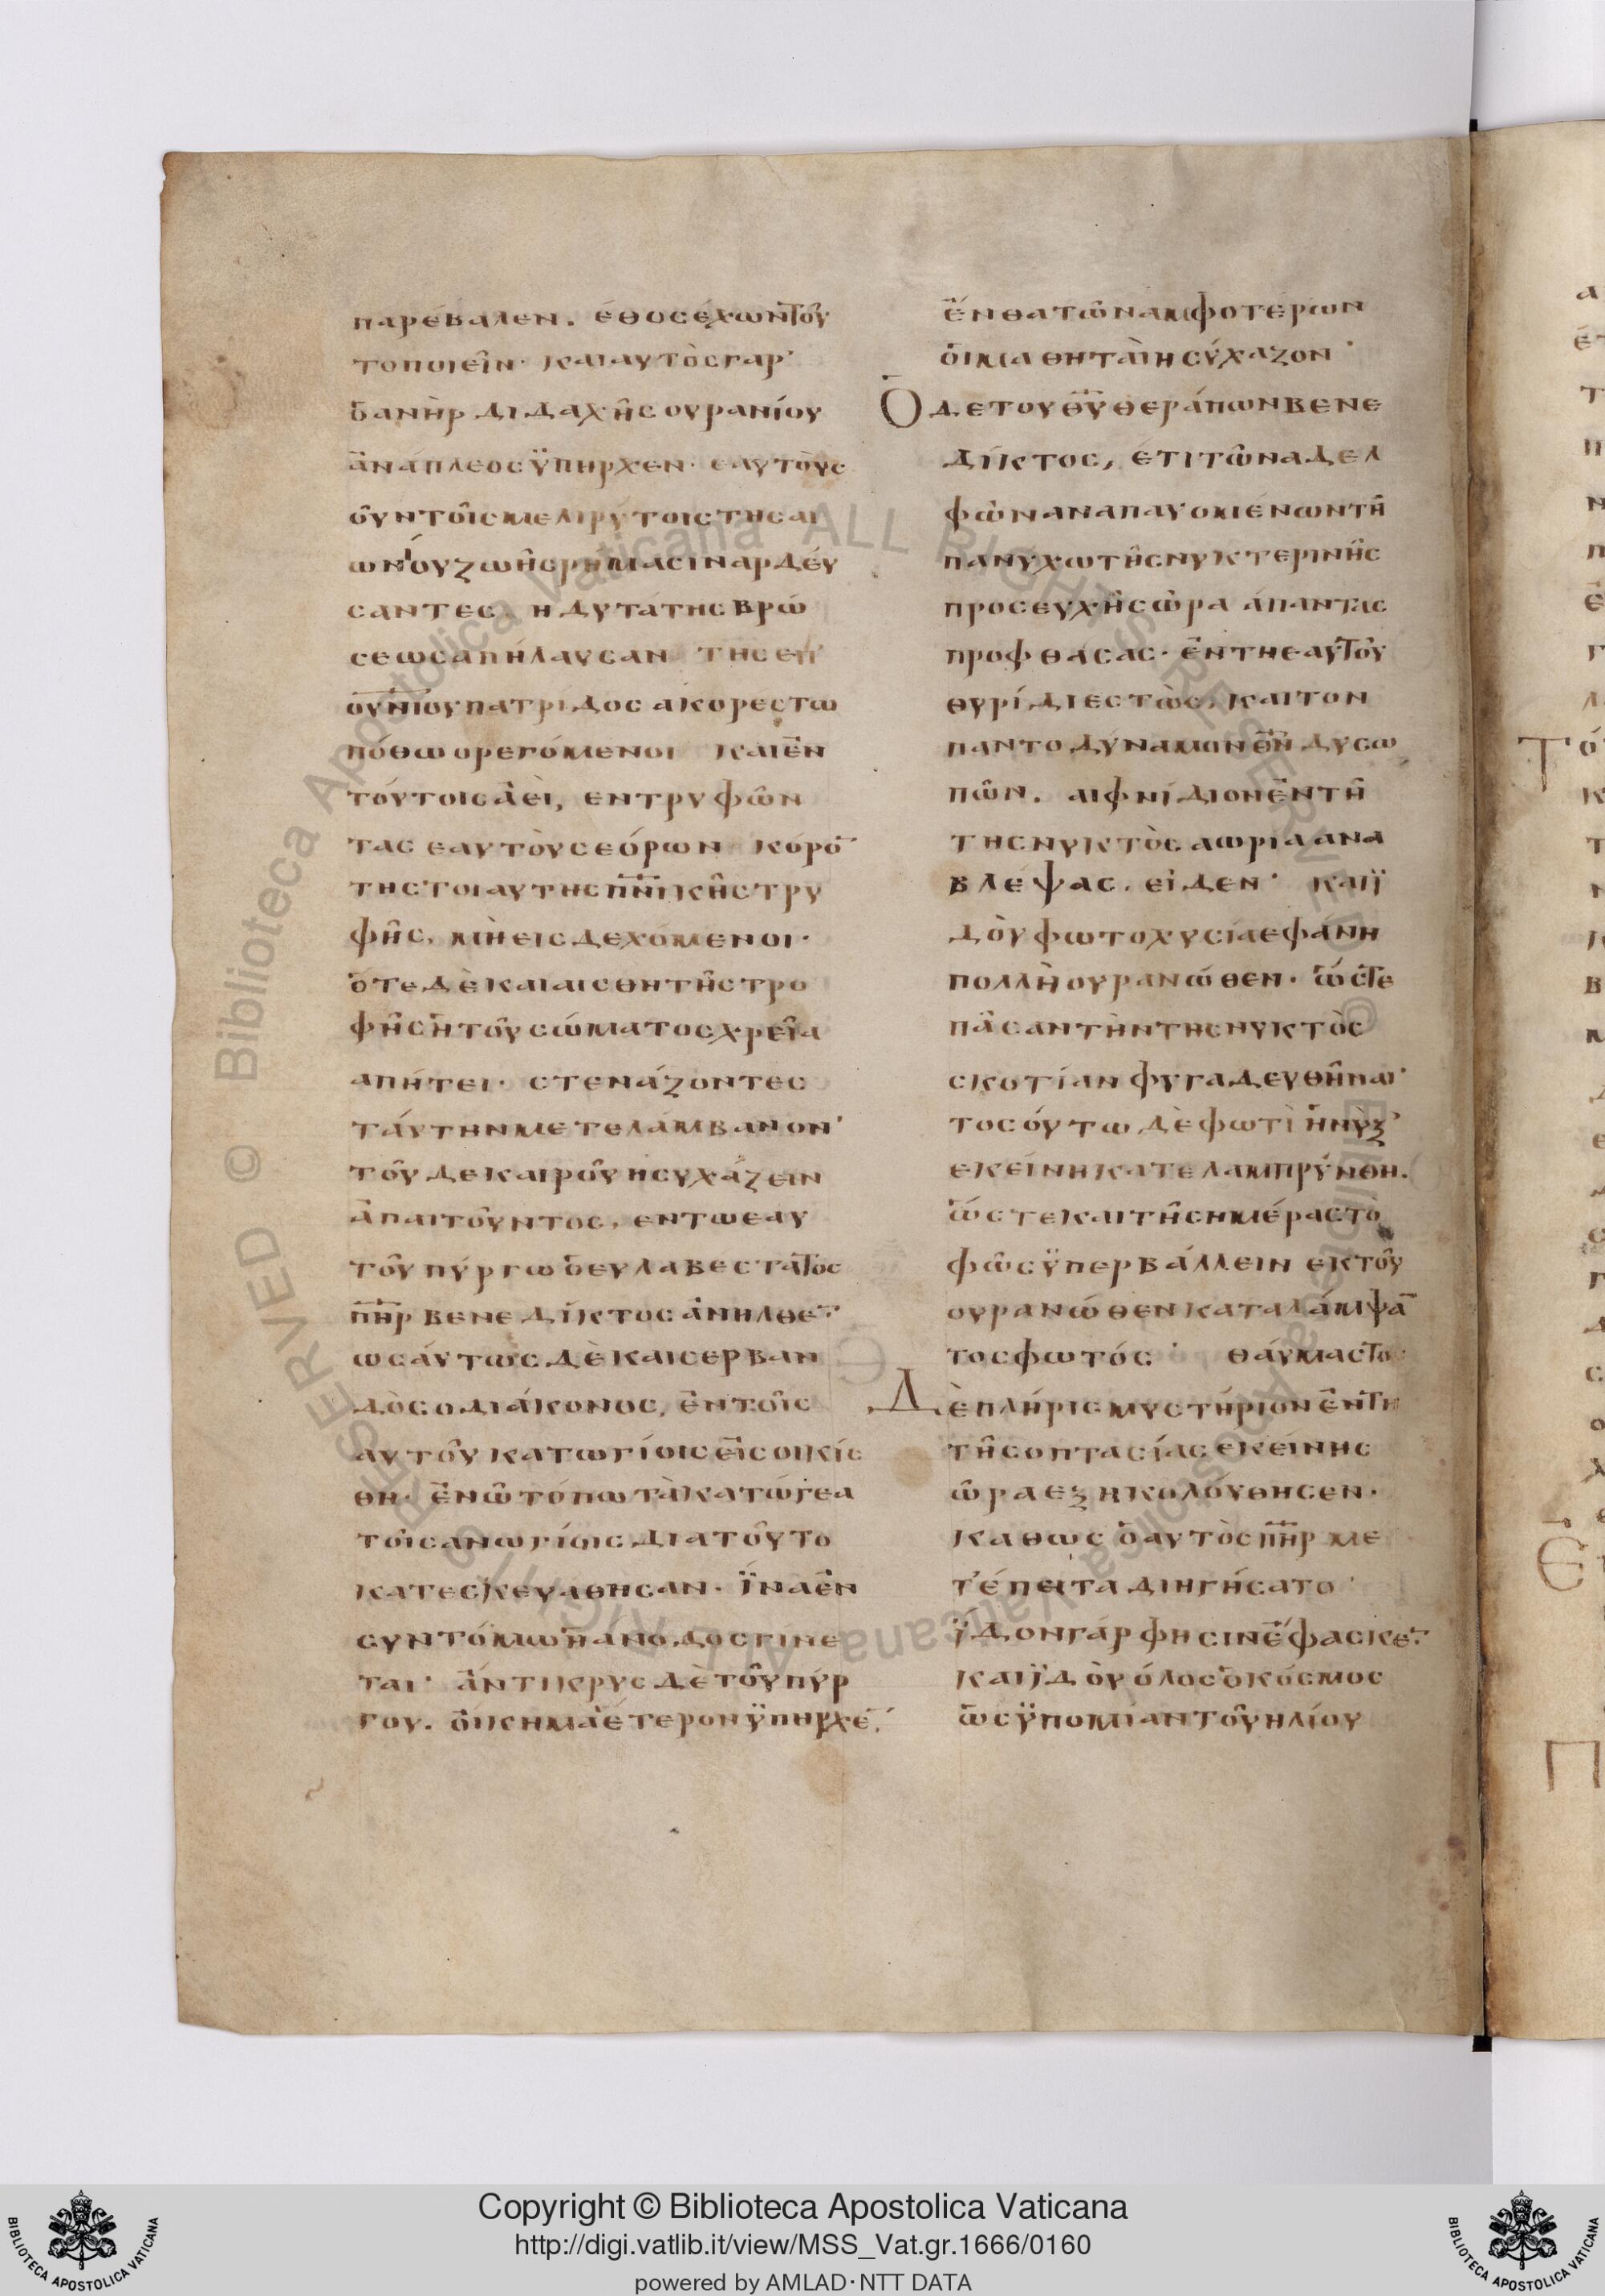 παρέβαλεν. έθος έχων τοῦ
το ποιεῖν· καὶ αυτὸς γαρ
ὁ ανὴρ διδαχῆς ουρανίου
ἀνάπλεος ϋπηρχεν· εαυτοὺς
οὖν τοῖς μελιρύτοις της αι
ωνίου ζωῆς ρήμασιν αρδεύ
σαντες, ηδυτάτης βρώ
σεως απήλαυσαν της επ
ουνίου πατρίδος ακορέστω
πόθω ορεγόμενοι και ἐν
τούτοις ἀεὶ, εντρυφῶν
τας εαυτοὺς εόρων κόρο̅
της τοιαυτης πνικῆς τρυ
φῆς, μὴ εισδεχόμενοι·
ὁτε δὲ και αισθητῆς τρο
φῆς ἡ τοῦ σώματος χρεῖα
απήτει· στενάζοντες
ταύτην μετελάμβανον·
τοῦ δε καιροῦ ησυχάζειν
ἀπαιτοῦντος, εν τω εαυ
τοῦ πύργω ὁ ευλαβέστατος
πῆρ βενεδίκτος ἀνηλθε̅·
ωσάυτως δὲ και σερβαν
δὸς ο διάκονος, ἐν τοῖς
αυτοῦ κατωγίοις εἰσοικίσ
θη· ἐν ὧ τόπω τὰ κατώγεα
τοῖς ανωγίοις δια τοῦτο
κατεσκευάθησαν· ἵνα ἐν
συντόμω ἡ άνοδος γίνε
ται· ἄντικρυς δὲ τοῦ πύρ
γου. οἴκημα ἕτερον ϋπηρχε̅·
ἔνθα τῶν αμφοτέρων
οἱ μαθηταὶ ησύχαζον·
Ὁ δε του θῦ θεράπων βενε
δίκτος, έτι τῶν αδελ
φῶν αναπαυομένων τῆ
πανύχω τῆς νυκτερινῆς
προσευχῆς ὥρα άπαντας
προφθάσας· ἐν τη εαυτοῦ
θυρίδι εστὼς, και τον
παντοδύναμον θν̅ δυσω
πῶν. αιφνίδιον ἐν τῆ
της νυκτὸς αωρία ανα
βλέψας. εἶδεν· και ϊ
δοὺ φωτοχυσία εφάνη
πολλὴ ουρανώθεν· ὥστε
πᾶσαν τὴν της νυκτὸς
σκοτίαν φυγαδευθῆναι·
τοσούτω δὲ φωτὶ ἡ νὺξ
εκείνη κατελαμπρύνθη.
ὥστε και τῆς ημέρας τὸ
φῶς ϋπερβάλλειν εκ τοῦ
ουρανώθεν καταλάμψα̅
τος φωτός· θάυμαστο̅
Δὲ πλήρις μυστήριον ἐν τη
τῆς οπτασίας εκείνης
ὥρα εξηκολούθησεν·
καθως ὁ αυτὸς πῆρ με
τ’ έπειτα διηγήσατο·
ϊδον γάρ φησιν έφασκε̅·
και ϊδοὺ όλος ὁ κόσμος
ὡς ϋπο μίαν τοῦ ηλίου
Copyright © Biblioteca Apostolica Vaticana
http://digi.vatlib.it/view/MSS_Vat.gr.1666/0160
powered by AMLAD·NTT DATA